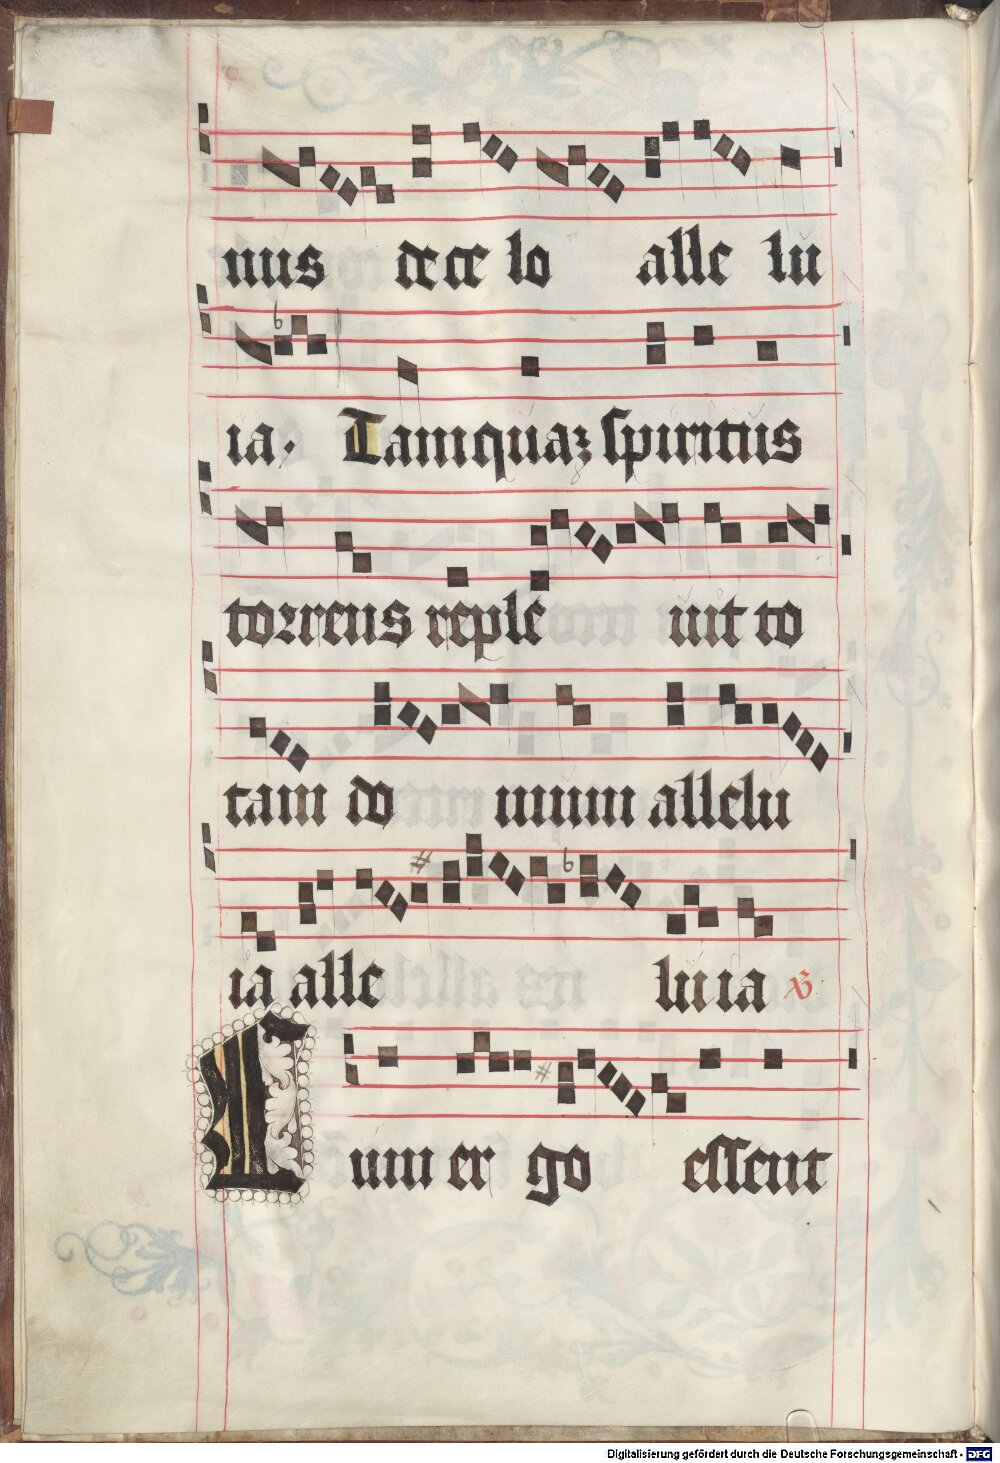 nus de ce lo alle lu
ia. Tamquaʒ spiritus
torrens reple uit to
tam do mum allelu
ia alle lu ia ℣
Dum er go essent
Digitalisierung gefördert durch die Deutsche Forschungsgemeinschaft - DFG